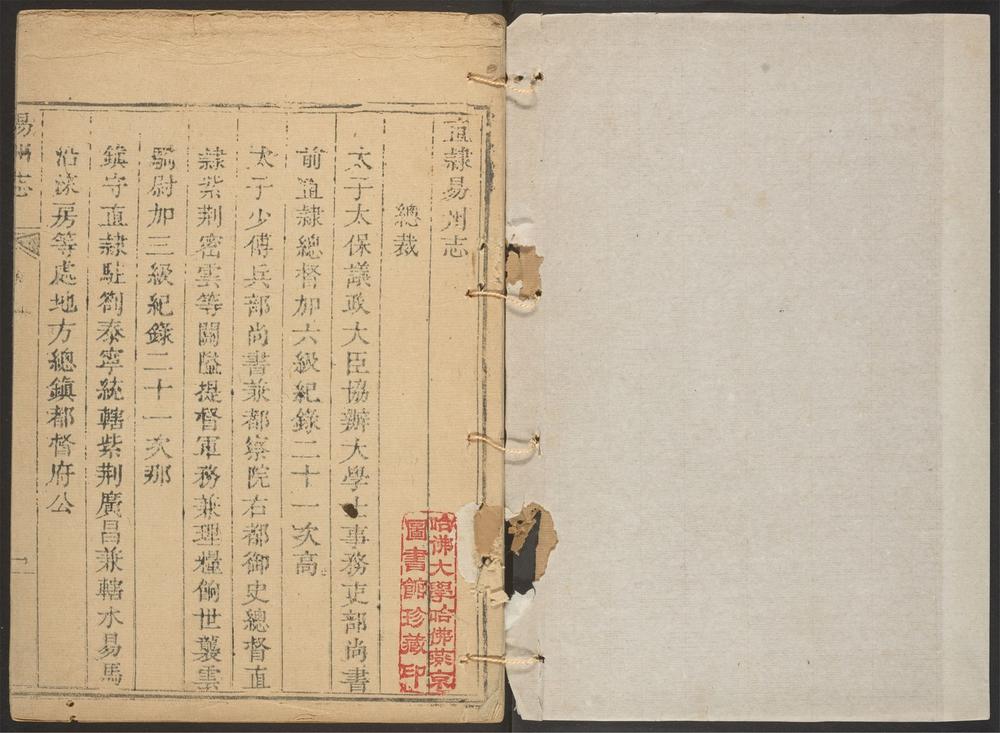 直隸易州志
總裁
太子太保議政大臣協辦大學士事務吏部尚書
前直隸總督加六級紀錄二十一次高
太子少傅兵部尚書兼都察院右都御史總督直
隸紫荆密雲等關隘提督軍務兼理糧餉世襲雲
騎尉加三級紀錄二十一次那
鎮守直隸駐劄泰寧統轄紫荆廣昌兼轄水易馬
沿淶房等處地方總鎮都督府公
易州志
一
哈佛大學哈佛燕京
圖書館珍藏印